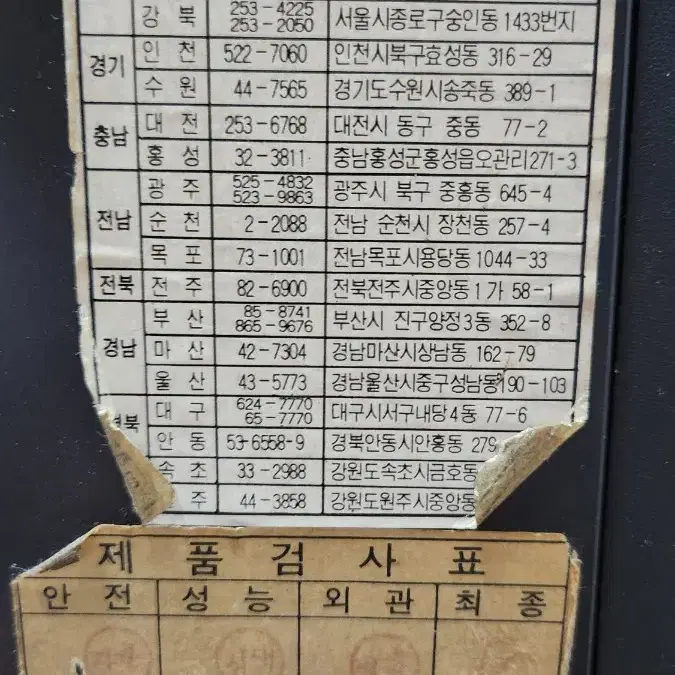 강북 253-4225 253-2050 서울시종로구숭인동 1433번지
경기 인천 522-7060 인천시북구효성동 316-29
수원 44-7565 경기도수원시송죽동 389-1
충남 대전 253-6768 대전시 동구 중동 77-2
홍성 32-3811 충남홍성군홍성읍오관리271-3
전남 광주 525-4832 523-9863 광주시 북구 중흥동 645-4
순천 2-2088 전남 순천시 장천동 257-4
목포 73-1001 전남목포시용당동1044-33
전북 전주 82-6900 전북전주시중앙동1가 58-1
경남 부산 85-8741 865-9676 부산시 진구양정3동 352-8
마산 42-7304 경남마산시상남동 162-79
울산 43-5773 경남울산시중구성남동190-103
북 대구 624-7770 65-7770 대구시서구내당4동 77-6
안동 53-6558-9 경북안동시안흥동 279
속초 33-2988 강원도속초시금호동
주 44-3858 강원도원주시중앙동
제품검사표
안전 성능 외관 최종